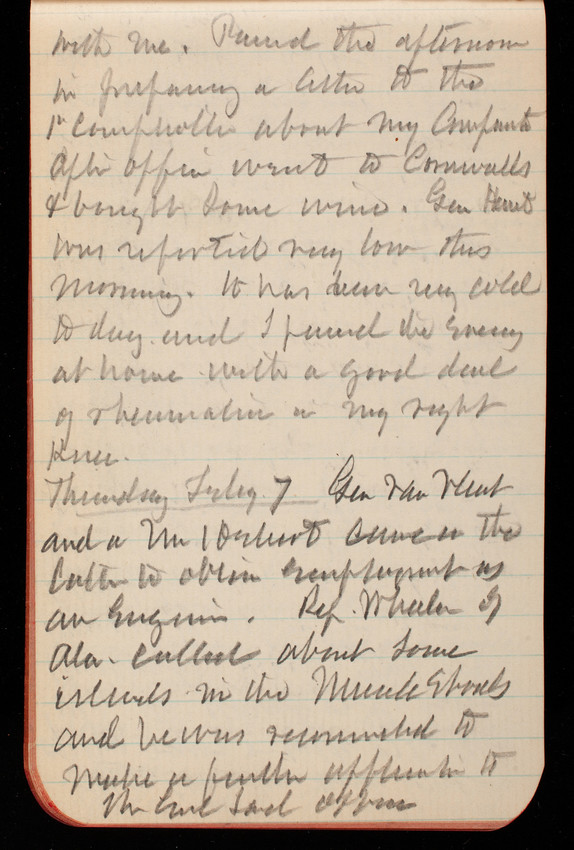 with me. Passed the afternoon
in preparing a letter to the
1st Comptroller about my Compants
After office went to Cornwalls
& bought some wine. Gen Hunt
was reported very low this
morning. It has been very cold
to day and I passed the evening
at home with a good deal
of rheumatism in my right
knee.
Thursday Feby 7 Gen Van Vliet
and a Mr Herbert came in the
latter to obtain employment as
an Engineer. Rep. Wheeler of
Ala. called about some
islands in the Muscle Shoals
and he was recommended to
make a further application to
the Land office